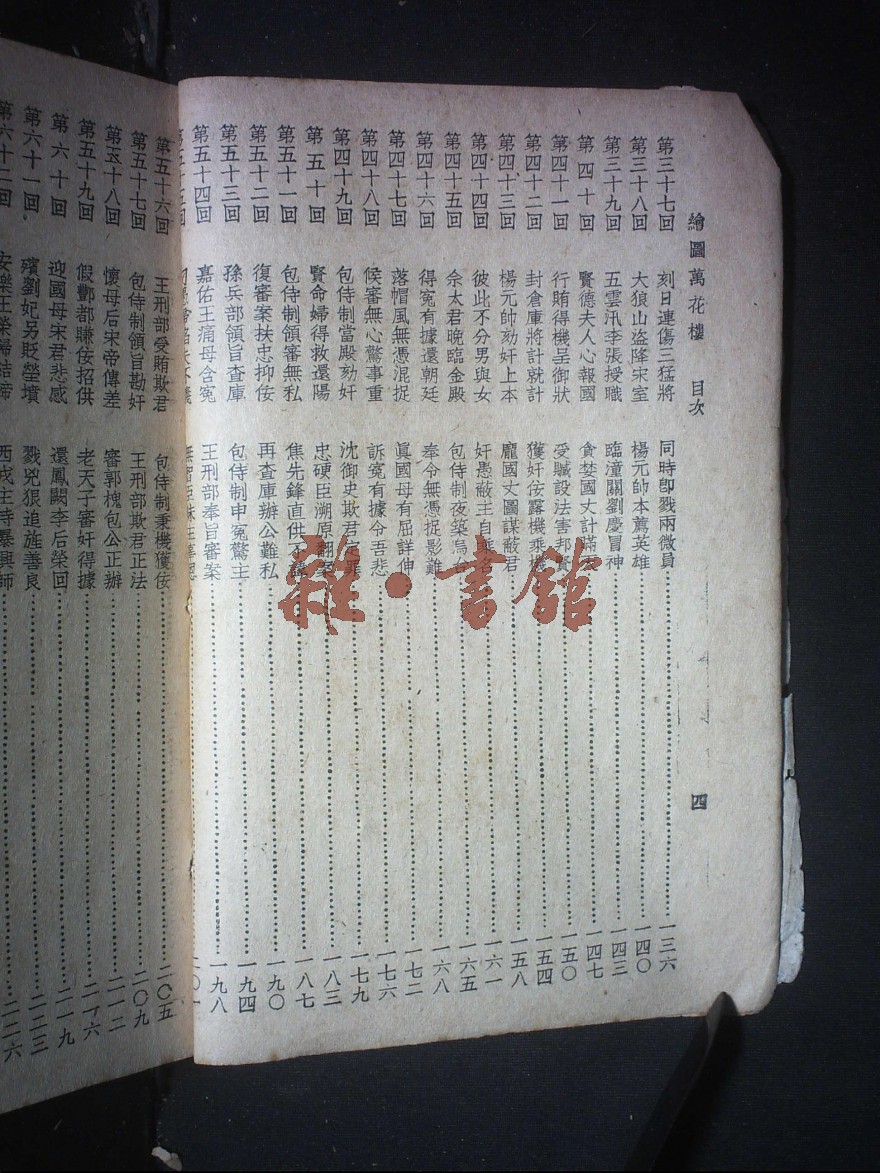 繪圖萬花樓 目次 四
第三十七回 刻日連傷三猛將 同時即戮兩微員 一三六
第三十八回 大狼山盜降宋室 楊元帥本薦英雄 一四〇
第三十九回 五雲汛李張授職 臨潼關劉慶冒神 一四三
第四十回 賢德夫人心報國 貪婪國丈計瞞 一四七
第四十一回 行賄得機呈御狀 受贓設法害邦賢 一五〇
第四十二回 封倉庫將計就計 獲奸佞露機乘機 一五四
第四十三回 楊元帥劾奸上本 龐國丈圖謀蔽君 一五八
第四十四回 彼此不分男與女 奸愚蔽主自乘名 一六一
第四十五回 佘太君晚臨金殿 包侍制夜築烏台 一六五
第四十六回 得冤有據還朝廷 奉令無憑捉影難 一六八
第四十七回 落帽風無憑混捉 眞國母有屈詳伸 一七二
第四十八回 候審無心驚事重 訴冤有據令吾悲 一七六
第四十九回 包侍制當殿劾奸 沈御史欺君定罪 一七九
第五十回 賢命婦得救還陽 忠硬臣溯原翻案 一八三
第五十一回 包侍制領審無私 焦先鋒直供不諱 一八七
第五十二回 復審案扶忠抑佞 再查庫辦公難私 一九〇
第五十三回 孫兵部領旨查庫 包侍制申冤驚主 一九四
第五十四回 嘉佑王痛母含冤 王刑部奉旨審案 一九八
第五十五回
第五十六回 王刑部受賄欺君 包侍制秉機獲佞 二〇五
第五十七回 包侍制領旨勘奸 王刑部欺君正法 二〇九
第五十八回 懷母后宋帝傳差 審郭槐包公正辦 二一二
第五十九回 假酆都賺佞招供 老天子審奸得據 二一六
第六十回 迎國母宋君悲感 還鳳闕李后榮回 二一九
第六十一回 殯劉妃另貶塋墳 戮兇狠追旌善良 二二三
第六十二回 安樂王榮歸結帝 西戎主恃暴興師 二二六
雜·書館